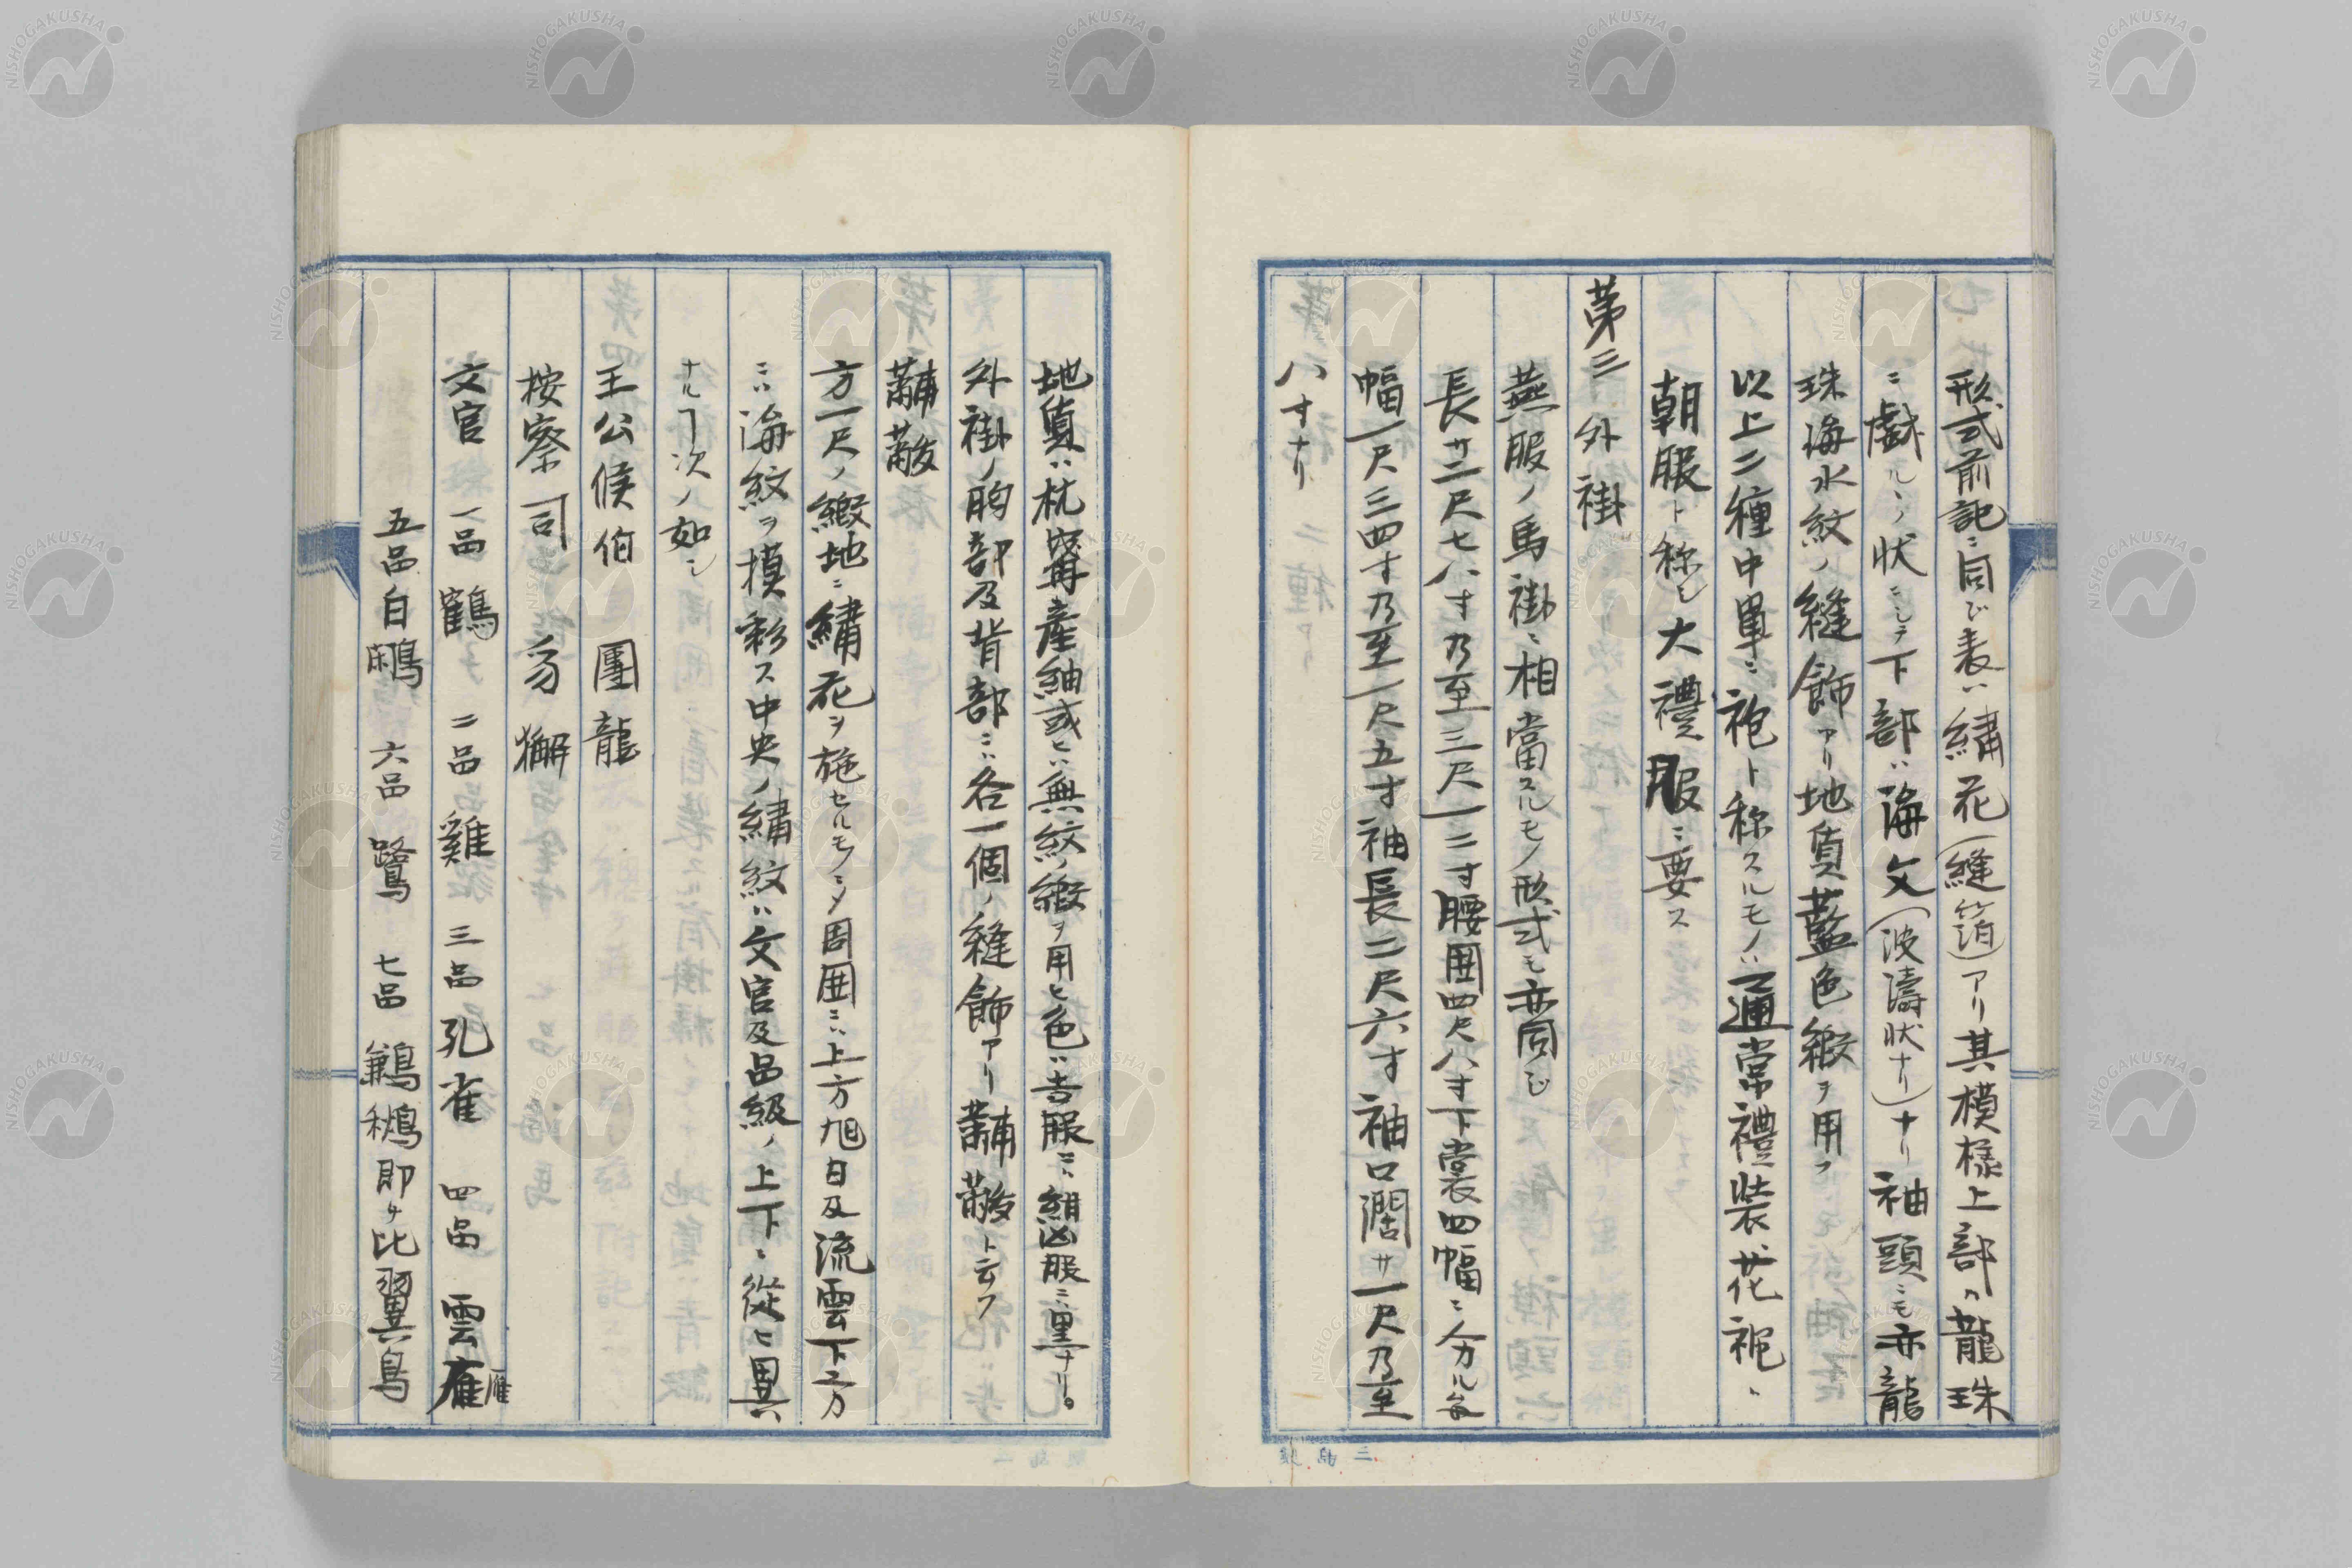 形式前記ニ同ジ表ハ繡花(縫箔)アリ其模様上部ハ龍珠
ニ戯ルヽノ状ニシテ下部ハ海文(波濤状ナリ)ナリ袖頭ニモ亦龍
珠海水紋ノ縫飾アリ地質藍色緞ヲ用フ
以上二種中単ニ袍ト称スルモノハ通常禮装花袍ハ
朝服ト称シ大禮服ニ要ス
第三 外褂
燕服ノ馬褂ニ相當スルモノ形式モ亦同ジ
長サ二尺七八寸乃至三尺一二寸腰囲四尺八寸下裳四幅ニ分ル各
幅一尺三四寸乃至一尺五寸袖長二尺六寸袖口濶サ一尺乃至
八寸ナリ
地質ハ杭寧産紬或ヒハ無紋ノ緞ヲ用ヒ色ハ吉服ニハ絹凶服ニハ黒ナリ。
外褂ノ胸部及背部ニハ各一個ノ縫飾アリ黼黻ト云フ
黼黻
方一尺ノ緞地ニ繡花ヲ施セルモノニシテ周囲ニハ上方旭日及流雲下方
ニハ海紋ヲ模彩ス中央ノ繡紋ハ文官及品級ノ上下ニ従ヒ異
ナルヿ次ノ如シ
王公侯伯 團龍
按察司 豸獬
文官 一品 鶴 二品 雞 三品 孔雀 四品 雲雁
雁
五品 白鷴 六品 鷺 七品 鶼鶼即チ比翼鳥
三島製